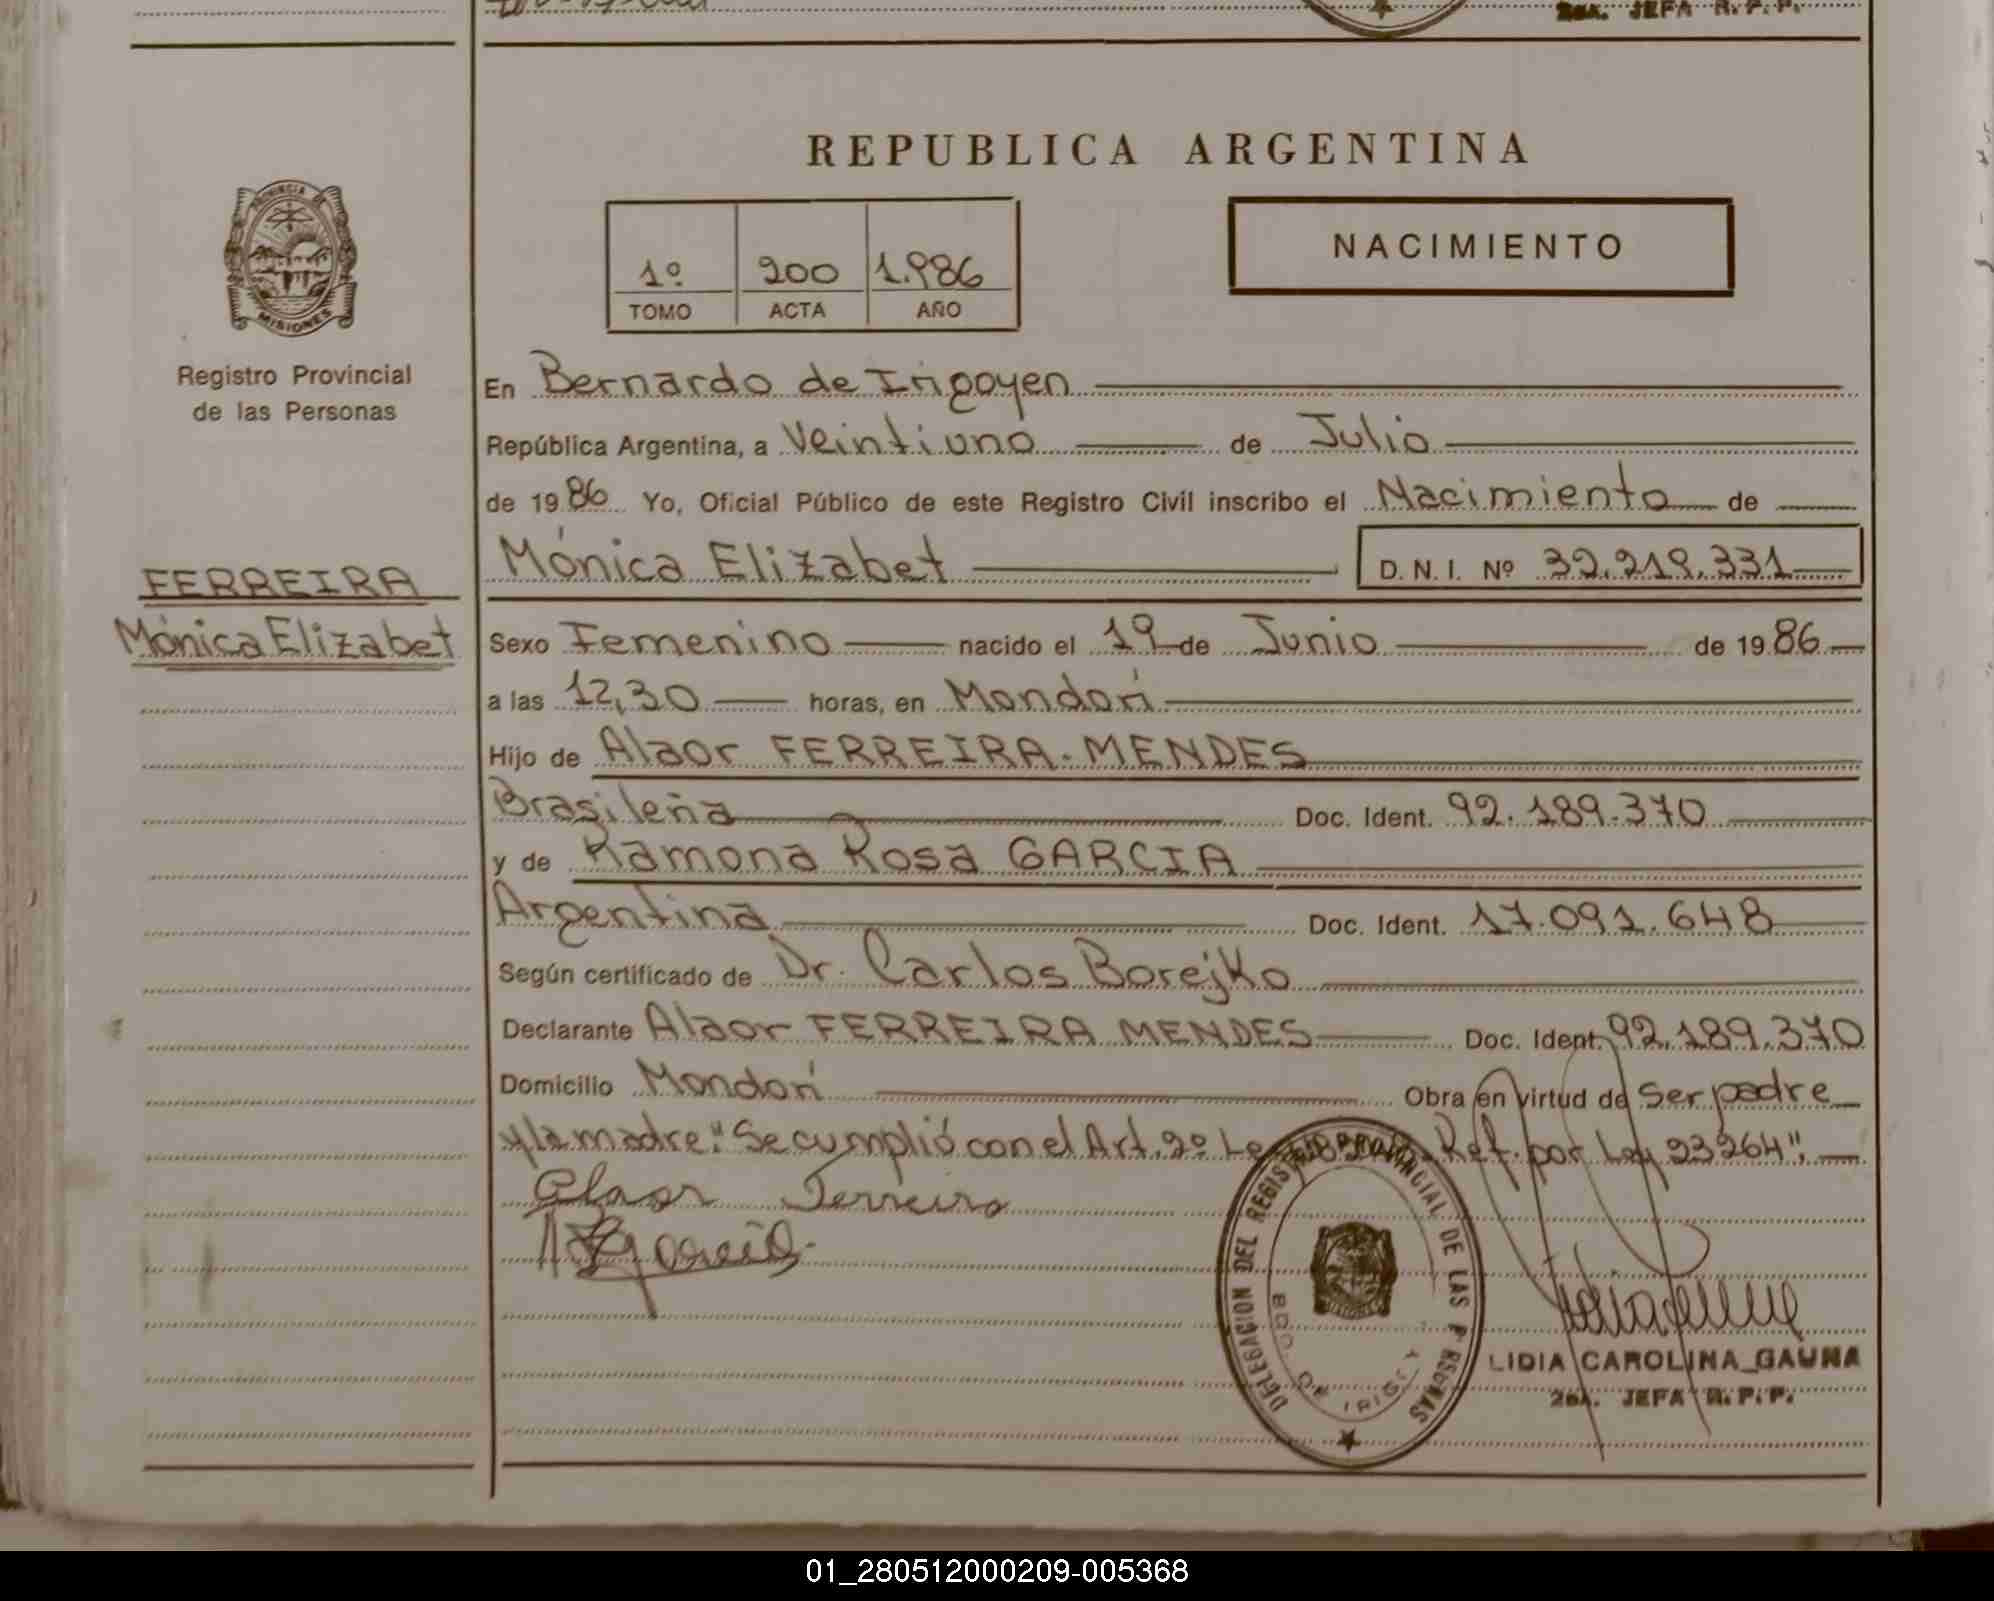 2da. JEFA R.P.P.
REPUBLICA ARGENTINA
PROVINCIA DE
MISIONES
Registro Provincial
de las Personas
1º 200 1.986
TOMO ACTA AÑO
NACIMIENTO
En Bernardo de Irigoyen
República Argentina, a Veintiuno de Julio
de 1986 Yo, Oficial Público de este Registro Civil inscribo el Nacimiento de
FERREIRA
Mónica Elizabet
Mónica Elizabet D.N.I. Nº 32.219.331
Sexo Femenino nacido el 19 de Junio de 1986
a las 12,30 horas, en Mondorí
Hijo de Alaor FERREIRA-MENDES
Brasileña Doc. Ident. 92.189.370
y de Ramona Rosa GARCIA
Argentina Doc. Ident. 17.091.648
Según certificado de Dr. Carlos Borejko
Declarante Alaor FERREIRA MENDES Doc. Ident. 92.189.370
Domicilio Mondorí Obra en virtud de Ser padre
y la madre: "Se cumplió con el Art. 2º Ref. por Ley 23264".
Alaor Ferreira
DELEGACION DEL REGISTRO PROVINCIAL DE LAS PERSONAS
BDO. DE IRIGOY
LIDIA CAROLINA GAUNA
2da. JEFA R.P.P.
01_280512000209-005368